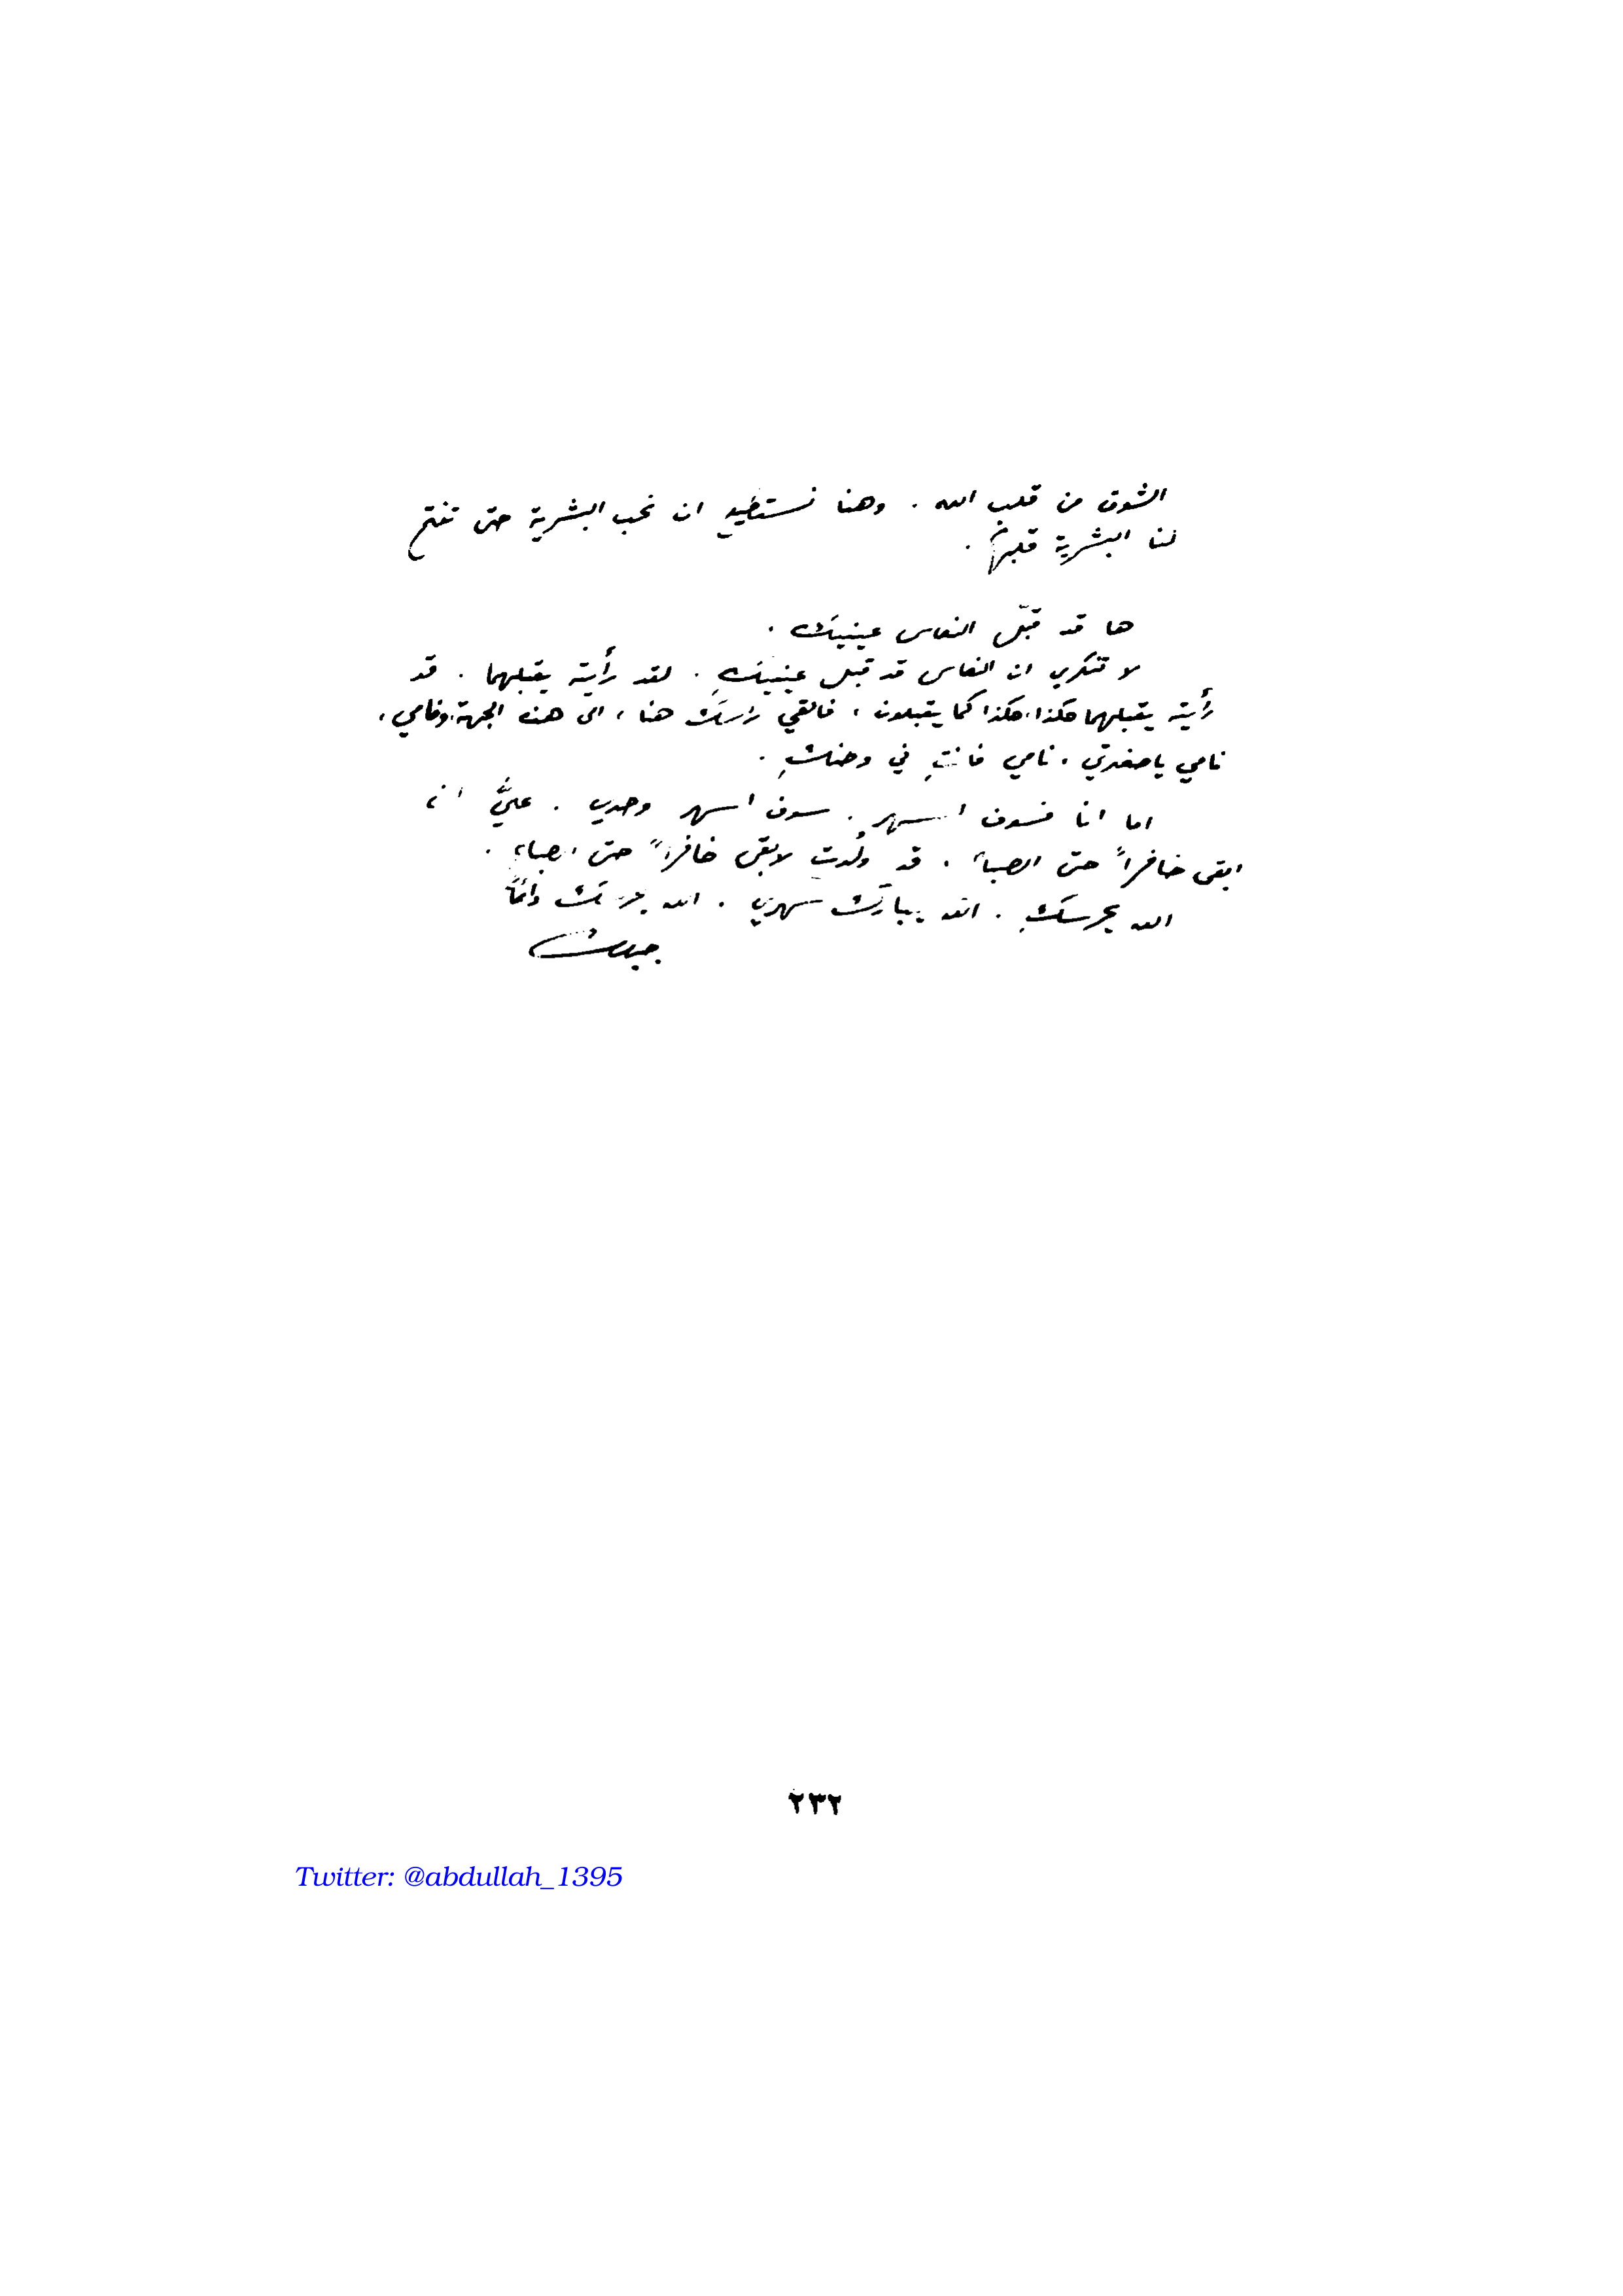 الشوق من قلب الله . وهنا نستطيع ان نحب البشرية حتى تفتح
لنا البشرية قلبها .
ها قد قبّل النعاس عينيك .
لا تنكري ان النعاس قد قبل عينيكِ . لقد رأيته يقبلهما . قد
رأيته يقبلهما هكذا، هكذا كما يقبلون ، فالقي راسك هنا ، الى هذه الجهة، ونامي ،
نامي يا صغيرتي ، نامي فانتِ في وطنكِ .
اما انا فسوف اسهر . سوف اسهر وحدي . عليَّ ان
ابقى خافراً حتى الصباح . قد وُلدت لابقى خافراً حتى الصباح .
الله يحرسكِ . الله يبارك سهري . الله يحرسك دائماً
جبران
٢٣٢
Twitter: @abdullah_1395